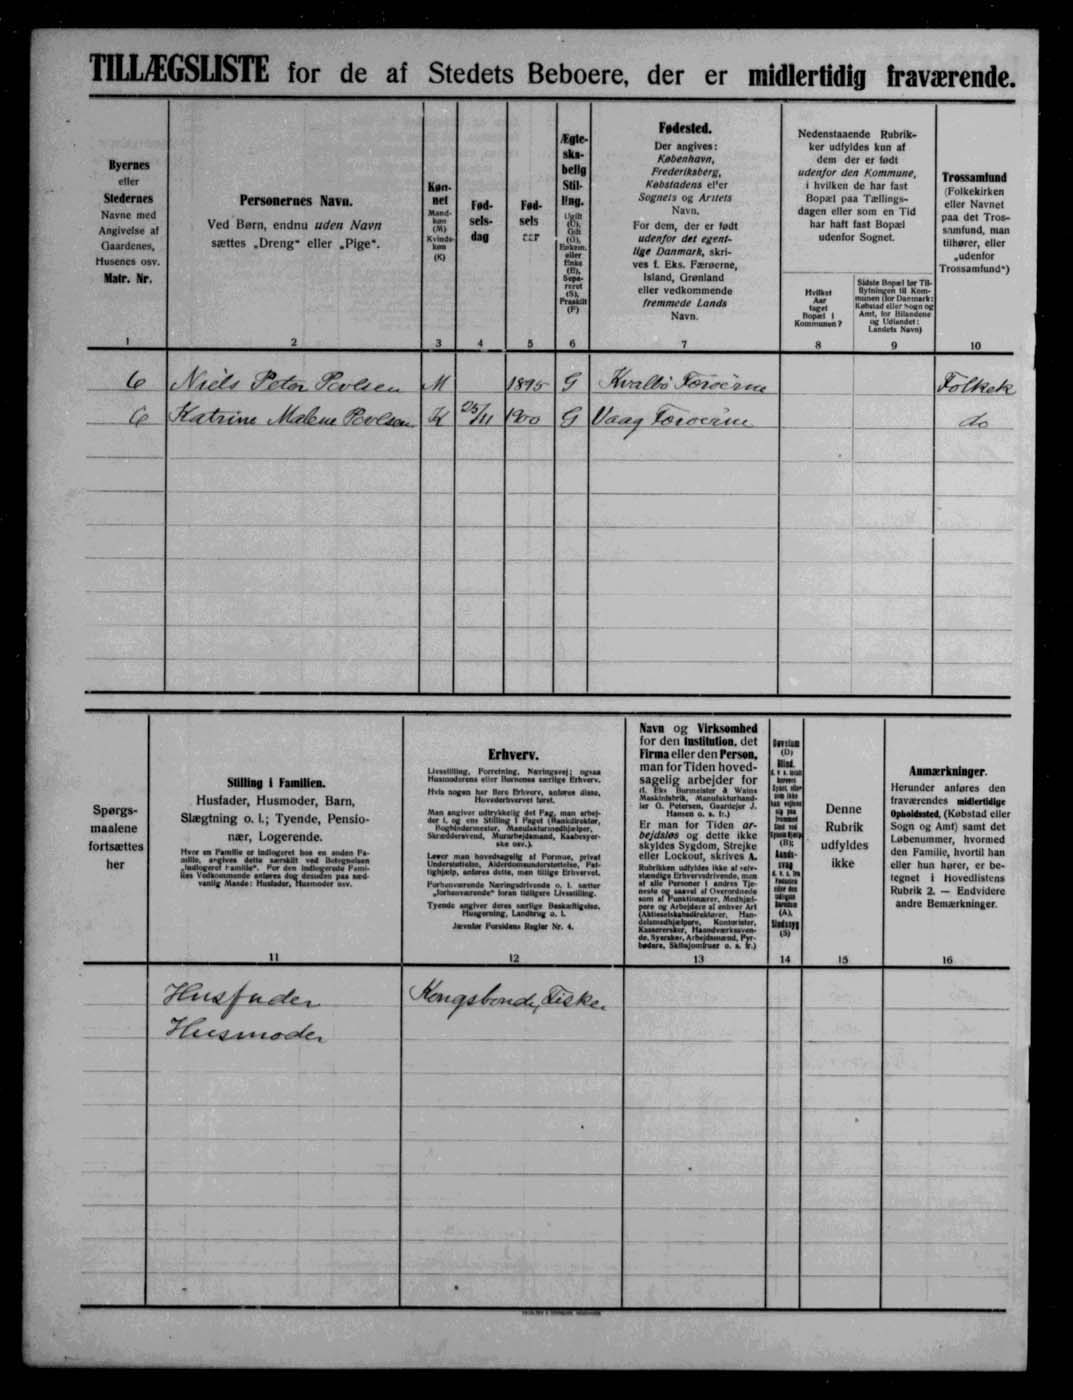 TILLÆGSLISTE for de af Stedets Beboere, der er midlertidig fraværende.
Byernes
eller
Stedernes
Navne med
Angivelse af
Gaardenes,
Husenes osv.
Matr. Nr.
1
Personernes Navn.
Ved Børn, endnu uden Navn
sættes „Dreng“ eller „Pige“.
2
Køn-
net
Mand-
køn
(M)
Kvinde-
køn
(K)
3
Fød-
sels-
dag
4
Fød-
sels
aar
5
Ægte-
ska-
belig
Stil-
ling.
Ugift
(U),
Gift
(G),
Enkem.
eller
Enke
(E),
Sepa-
reret
(S),
Fraskilt
(F)
6
Fødested.
Der angives:
København,
Frederiksberg,
Købstadens eller
Sognets og Amtets
Navn.
For dem, der er født
udenfor det egent-
lige Danmark, skri-
ves f. Eks. Færøerne,
Island, Grønland
eller vedkommende
fremmede Lands
Navn.
7
Nedenstaaende Rubrik-
ker udfyldes kun af
dem der er født
udenfor den Kommune,
i hvilken de har fast
Bopæl paa Tællings-
dagen eller som en Tid
har haft fast Bopæl
udenfor Sognet.
Hvilket
Aar
taget
Bopæl i
Kommunen?
8
Sidste Bopæl før Til-
flytningen til Kom-
munen (for Danmark:
Købstad eller Sogn og
Amt, for Bilandene
og Udlandet:
Landets Navn)
9
Trossamfund
(Folkekirken
eller Navnet
paa det Tros-
samfund, man
tilhører, eller
„udenfor
Trossamfund“)
10
6 Niels Peter Povlsen M 1895 G Kvalbø Færøerne Folkek
6 Katrine Malene Povlsen K 25/11 1900 G Vaag Færøerne do
Spørgs-
maalene
fortsættes
her
Stilling i Familien.
Husfader, Husmoder, Barn,
Slægtning o. l.; Tyende, Pensio-
nær, Logerende.
Hvor en Familie er indlogeret hos en anden Fa-
milie, angives dette særskilt ved Betegnelsen
„indlogeret Familie“. For den indlogerede Fami-
lies Vedkommende anføres dog desuden paa sæd-
vanlig Maade: Husfader, Husmoder osv.
11
Erhverv.
Livsstilling, Forretning, Næringsvej; ogsaa
Husmoderens eller Børnenes særlige Erhverv.
Hvis nogen har flere Erhverv, anføres disse,
Hovederhvervet først.
Man angiver udtrykkelig det Fag, man arbej-
der i, og ens Stilling i Faget (Bankdirektør,
Bogbindermester, Manufakturmedhjælper,
Skræddersvend, Murarbejdsmand, Kaabesyer-
ske osv.).
Lever man hovedsagelig af Formue, privat
Understøttelse, Alderdomsunderstøttelse, Fat-
tighjælp, anføres dette, men tillige Erhvervet.
Forhenværende Næringsdrivende o. l. sætter
„forhenværende“ foran tidligere Livsstilling.
Tyende angiver deres særlige Beskæftigelse,
Husgerning, Landbrug o. l.
Jævnfør Forsidens Regler Nr. 4.
12
Navn og Virksomhed
for den Institution, det
Firma eller den Person,
man for Tiden hoved-
sagelig arbejder for
(f. Eks Burmeister & Wains
Maskinfabrik, Manufakturhand-
ler G. Petersen, Gaardejer J.
Hansen o. s. fr.)
Er man for Tiden ar-
bejdsløs og dette ikke
skyldes Sygdom, Strejke
eller Lockout, skrives A.
Rubrikken udfyldes ikke af selv-
stændige Erhvervsdrivende, men
af alle Personer i andres Tje-
neste og saavel af Overordnede
som af Funktionærer, Medhjæl-
pere og Arbejdere af enhver Art
(Aktieselskabsdirektører, Han-
delsmedhjælpere, Kontorister,
Kasserersker, Haandværkssven-
de, Syersker, Arbejdsmænd, Fyr-
bødere, Skibsjomfruer o. s. fr.)
13
Døvstum
(D)
Blind,
(B);
(A),
Sindssyg
(S)
14
Denne
Rubrik
udfyldes
ikke
15
Anmærkninger.
Herunder anføres den
fraværendes midlertidige
Opholdssted, (Købstad eller
Sogn og Amt) samt det
Løbenummer, hvormed
den Familie, hvortil han
eller hun hører, er be-
tegnet i Hovedlistens
Rubrik 2. — Endvidere
andre Bemærkninger.
16
Husfader Kongsbonde, Fisker
Husmoder